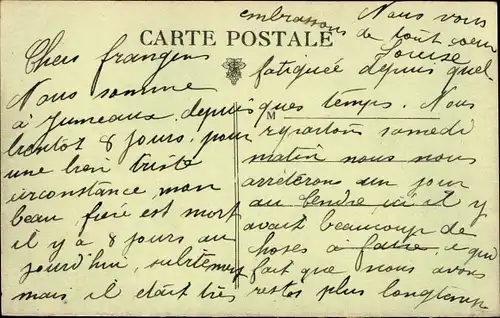 Nous vous
embrassons de tout coeur
Louise
CARTE POSTALE
Chers frangins
Nous somme
à Jumeaux depuis
bientot 8 jours, pour
une bien triste
circonstance, mon
beau frère est mort
il y a 8 jours au
jourd'hui, subitement
mais il était très
fatiguée depuis quel
ques temps. Nous
M
repartons samedi
matin nous nous
arrêterons un jour
au Cendre ici il y
avait beaucoup de
choses à faire, ce qui
fait que nous avons
restés plus longtemp